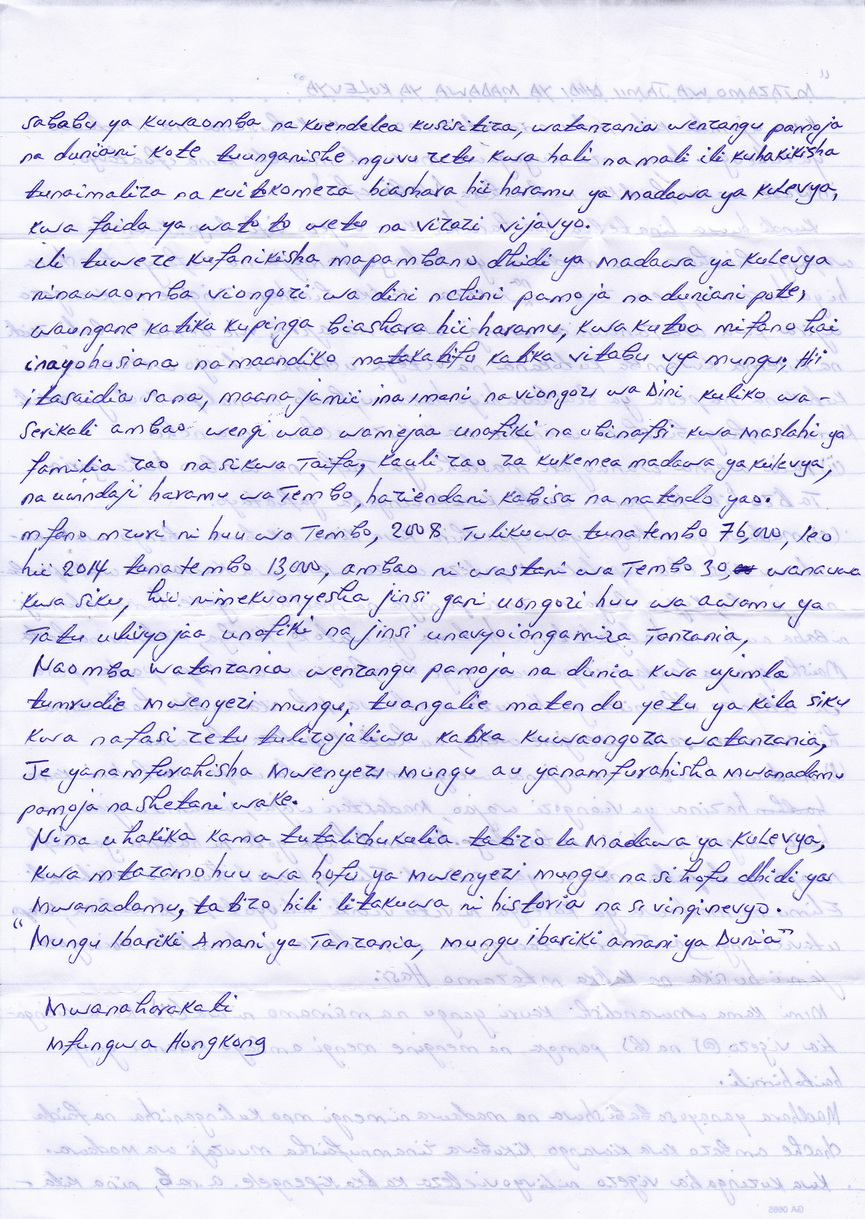 sababu ya kuwaomba na kuendelea kusisitiza, watanzania wenzangu pamoja
na duniani kote tuunganishe nguvu zetu kwa hali na mali ili kuhakikisha
tunaimaliza na kuitokomeza biashara hii haramu ya madawa ya kulevya,
kwa faida ya watoto wetu na vizazi vijavyo.
ili tuweze kufanikisha mapambano dhidi ya madawa ya kulevya
ninawaomba viongozi wa dini nchini pamoja na duniani pote,
waungane katika kupinga biashara hii haramu, kwa kutoa mifano hai
inayohusiana na maandiko matakatifu katika vitabu vya mungu, Hii
itasaidia sana, maana jamii ina imani na viongozi wa Dini kuliko wa-
serikali ambao wengi wao wamejaa unafiki na ubinafsi kwa maslahi ya
familia zao na si kwa Taifa, kauli zao za kukemea madawa ya kulevya,
na uwindaji haramu wa Tembo, haziendani kabisa na matendo yao.
mfano mzuri ni huu wa Tembo, 2008 Tulikuwa tuna tembo 76,000, leo
hii 2014 tuna tembo 13,000, ambao ni wastani wa Tembo 30, wanauwa
kwa siku, hii nimekuonyesha jinsi gani uongozi huu wa awamu ya
Tatu ulivyojaa unafiki na jinsi unavyoiongamiza Tanzania,
Naomba watanzania wenzangu pamoja na dunia kwa ujumla
tumrudie Mwenyezi mungu, tuangalie matendo yetu ya kila siku
kwa nafasi zetu tulizojaliwa katika kuwaongoza watanzania,
Je yanamfurahisha Mwenyezi Mungu au yanamfurahisha mwanadamu
pamoja na shetani wake.
Nina uhakika kama tutalichukulia tatizo la Madawa ya kulevya,
kwa mtazamo huu wa hofu ya mwenyezi mungu na si hofu dhidi ya
mwanadamu, tatizo hili litakuwa ni historia na si vinginevyo.
"Mungu Ibariki Amani ya Tanzania, mungu ibariki amani ya Dunia"
Mwanaharakati
Mfungwa HongKong